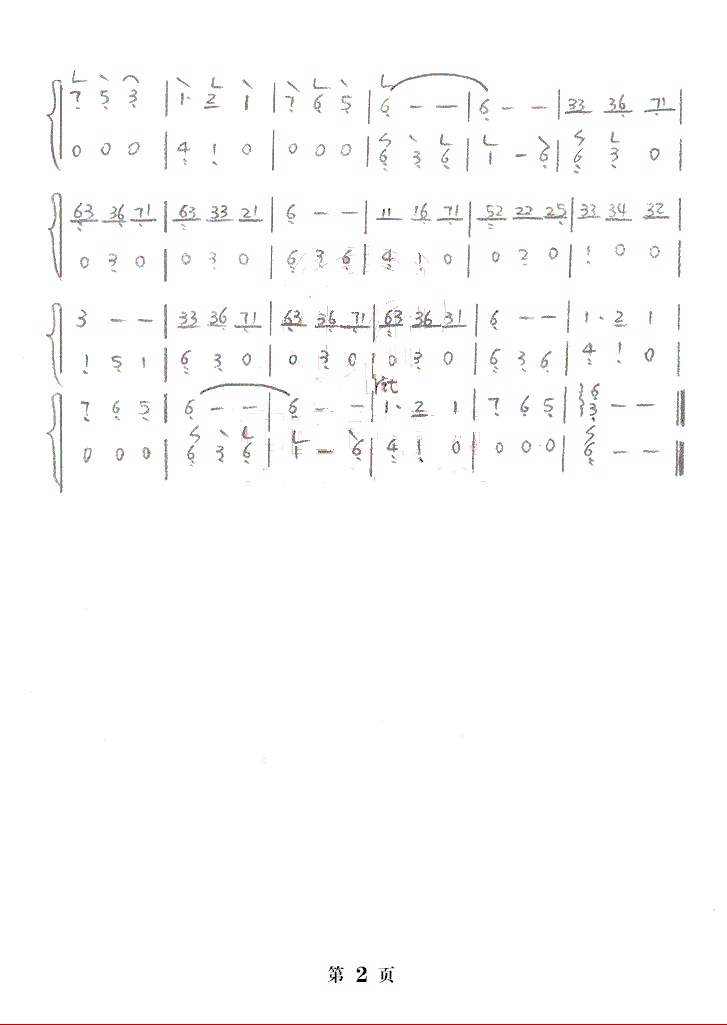 7 5 3 | 1· 2 1 | 7 6 5 | 6 — — | 6 — — | 33 36 71 |
0 0 0 | 4 1 0 | 0 0 0 | 6 3 6 | 1 — 6 | 6 3 0 |
63 36 71 | 63 33 21 | 6 — — | 11 16 71 | 52 22 25 | 33 34 32 |
0 3 0 | 0 3 0 | 6 3 6 | 4 1 0 | 0 2 0 | 1 0 0 |
3 — — | 33 36 71 | 63 36 71 | 63 36 31 | 6 — — | 1· 2 1 |
1 5 1 | 6 3 0 | 0 3 0 | 0 3 0 | 6 3 6 | 4 1 0 |
rit
7 6 5 | 6 — — | 6 — — | 1· 2 1 | 7 6 5 | 6 3 — — ‖
0 0 0 | 6 3 6 | 1 — 6 | 4 1 0 | 0 0 0 | 6 — — ‖
第 2 页